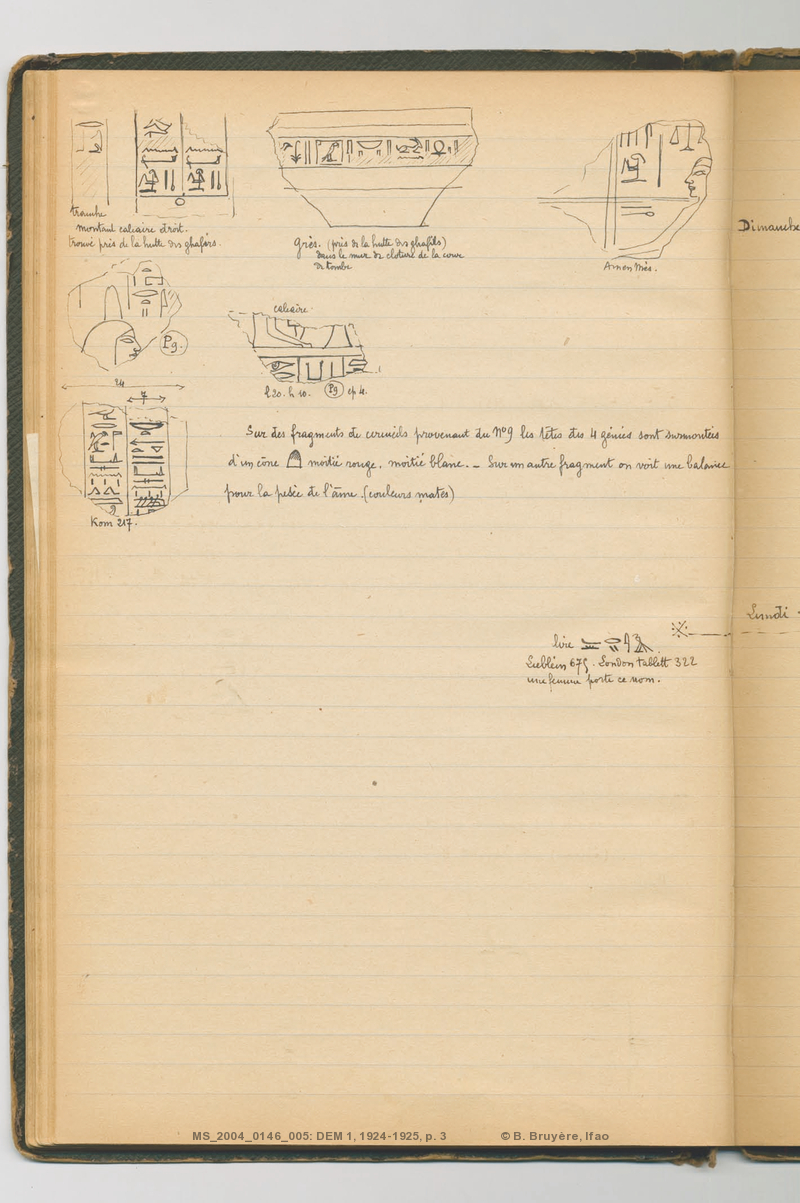 tranche
montant calcaire droit.
trouvé près de la hutte des ghafirs.
Grès. (près de la hutte des ghafirs)
dans le mur de cloture de la cour
de tombe
Amon Mès.
P9.
calcaire.
l 20. h 10. P9 ep 4.
24
7
Kom 217.
Sur des fragments de cercueils provenant du N°9 les têtes des 4 génies sont surmontées
d'un cône moitié rouge, moitié blanc. _ Sur un autre fragment on voit une balance
pour la pesée de l'âme. (couleurs mates)
lire
Lieblein 675. London tablett 322
une femme porte ce nom.
Dimanche
Lundi
MS_2004_0146_005: DEM 1, 1924-1925, p. 3 © B. Bruyère, Ifao